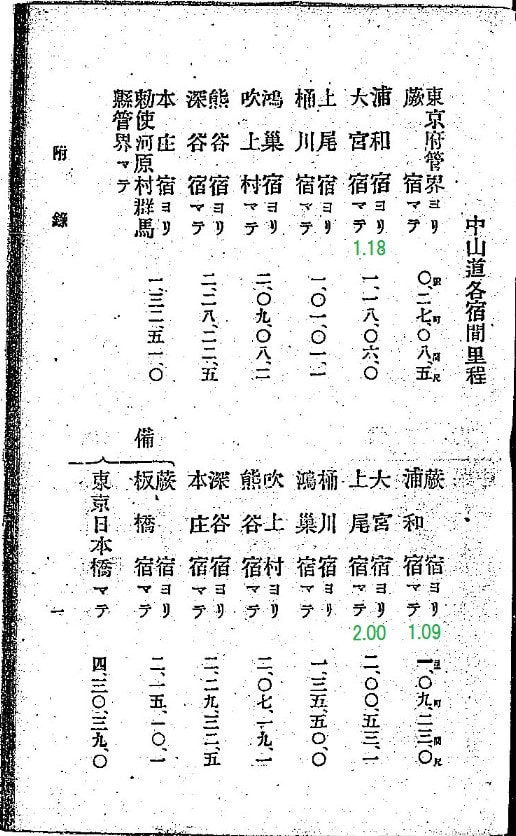 中山道各宿間里程
東京府管界ヨリ
蕨宿マテ
町 間 尺
〇、二七、〇八、五
浦和宿ヨリ
大宮宿マテ
1.18
一、一八、〇六、〇
上尾宿ヨリ
桶川宿マテ
一、〇一、〇一、一
鴻巣宿ヨリ
吹上村マテ
二、〇九、〇八、二
熊谷宿ヨリ
深谷宿マテ
二、二八、二二、五
本庄宿ヨリ
勅使河原村群馬
縣管界マテ
一、三二、五一、〇
蕨宿ヨリ
浦和宿マテ
1.09
里 町 間 尺
一、〇九、二三、〇
大宮宿ヨリ
上尾宿マテ
2.00
二、〇〇、五三、一
桶川宿ヨリ
鴻巣宿マテ
一、三五、五〇、〇
吹上村ヨリ
熊谷宿マテ
二、〇七、一九、一
深谷宿ヨリ
本庄宿マテ
二、二九、三二、五
備
蕨宿ヨリ
板橋宿マテ
二、一五、一〇、一
東京日本橋マテ
四、三〇、三九、〇
附錄
一